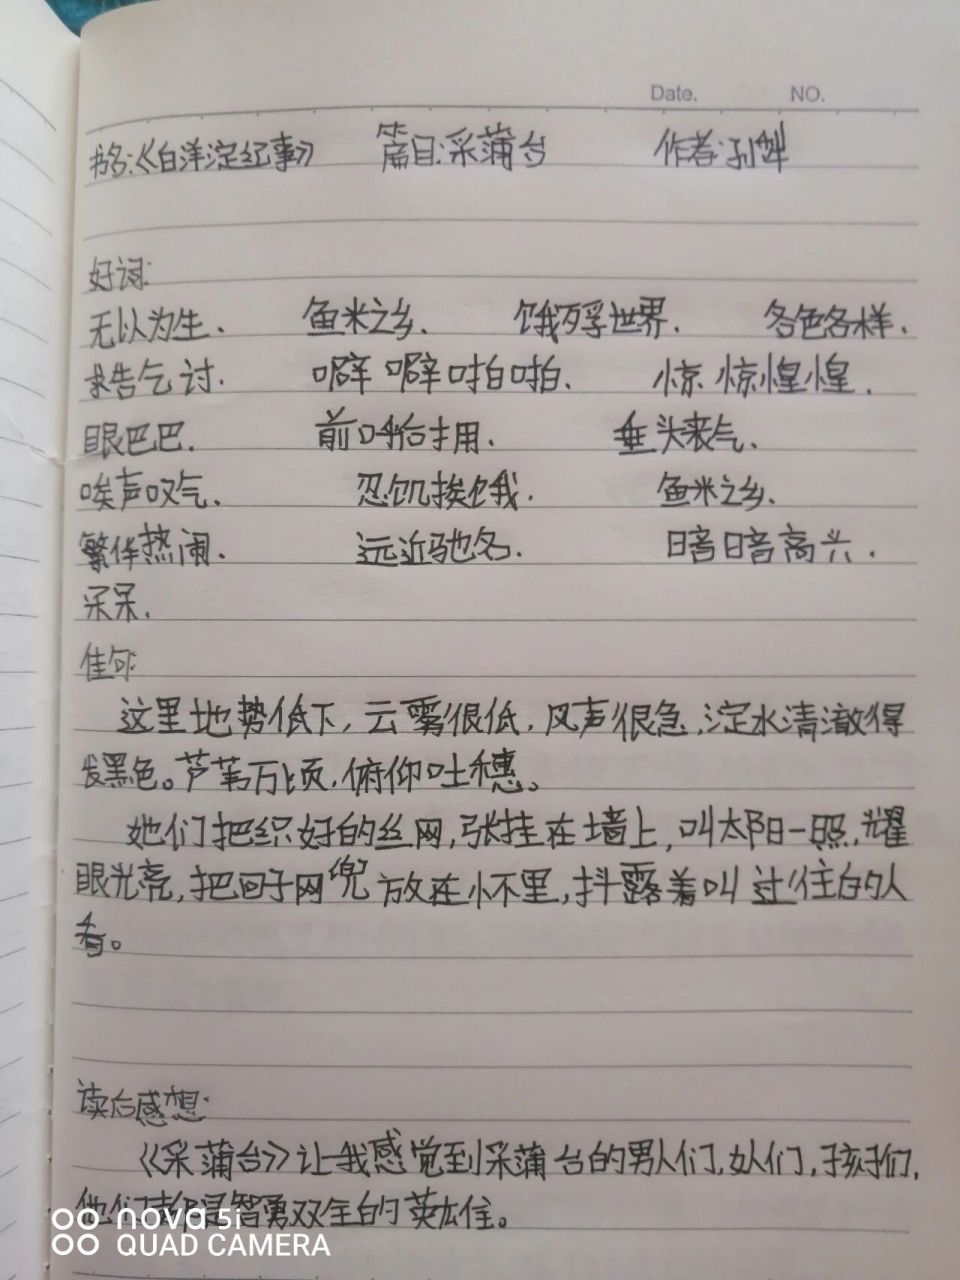 Date. NO.
书名:《白洋淀纪事》 篇目:采蒲台 作者:孙犁
好词:
无以为生. 鱼米之乡. 饿殍世界. 各色各样.
求告乞讨. 噼噼啪啪. 惊惊惶惶.
眼巴巴. 前呼后拥. 垂头丧气.
唉声叹气. 忍饥挨饿. 鱼米之乡.
繁华热闹. 远近驰名. 暗暗高兴.
呆呆.
佳句:
这里地势低下,云雾很低,风声很急,淀水清澈得
发黑色。芦苇万顷,俯仰吐穗。
她们把织好的丝网,张挂在墙上,叫太阳一照,耀
眼光亮,把回子网兜放在怀里,抖露着叫过往的人
看。
读后感想:
《采蒲台》让我感觉到采蒲台的男人们,女人们,孩子们,
他们都是智勇双全的英雄。
nova 5i
QUAD CAMERA